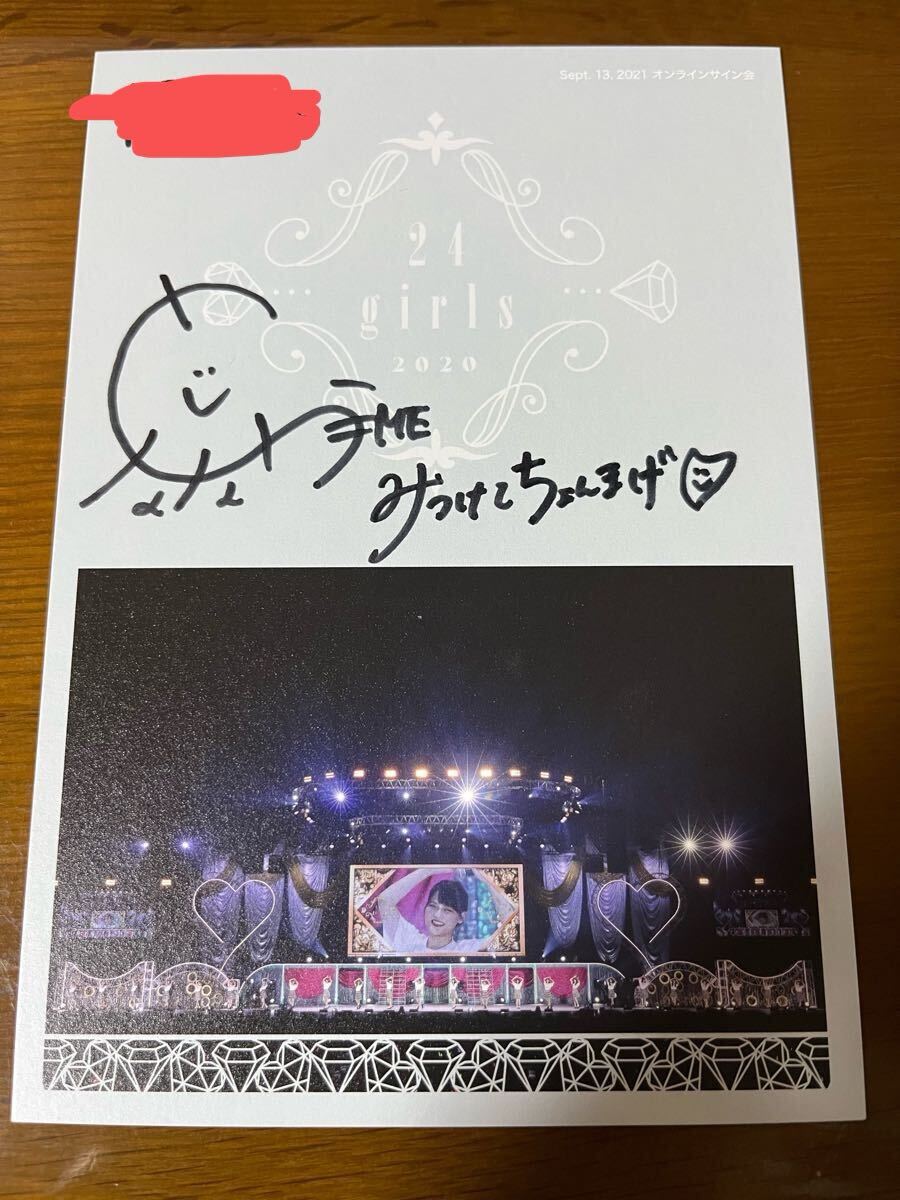 Sept. 13, 2021 オンラインサイン会
24
girls
2020
ME
みつけてちょんまげ